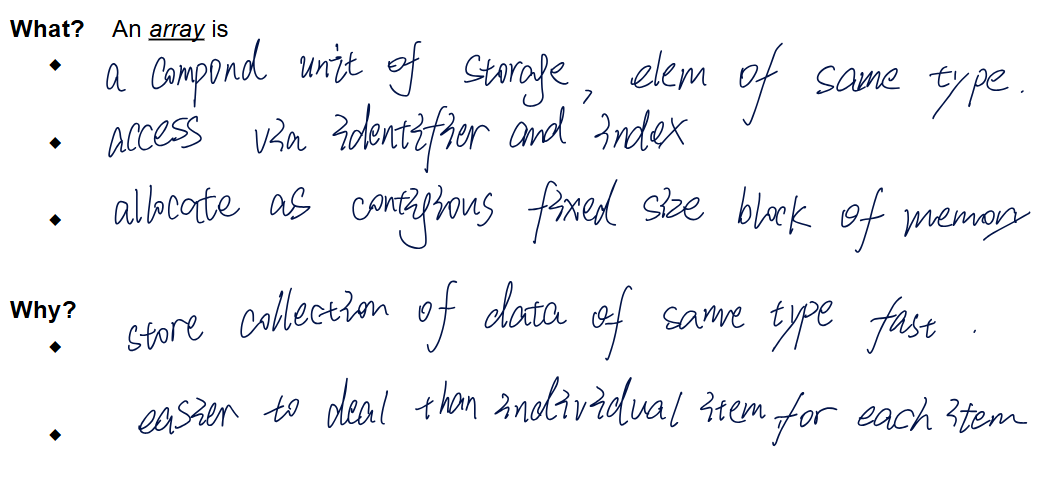 What? An array is
◆ a compond unit of storage, elem of same type.
◆ access via identifier and index
◆ allocate as contigious fixed size block of memory
Why?
◆ store collection of data of same type fast.
◆ easier to deal than individual item for each item